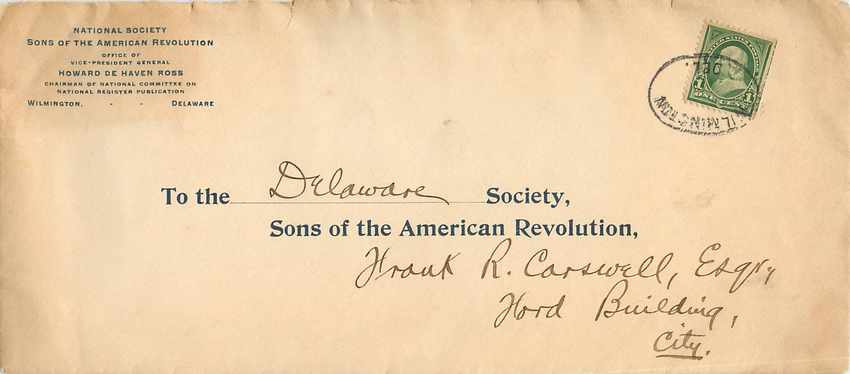 NATIONAL SOCIETY
SONS OF THE AMERICAN REVOLUTION
OFFICE OF
VICE-PRESIDENT GENERAL
HOWARD DE HAVEN ROSS
CHAIRMAN OF NATIONAL COMMITTEE ON
NATIONAL REGISTER PUBLICATION
WILMINGTON, - - DELAWARE
1 ONE CENT 1
WILMINGTON
DEL.
To the Delaware Society,
Sons of the American Revolution,
Frank R. Carswell, Esqr,
Ford Building,
City.